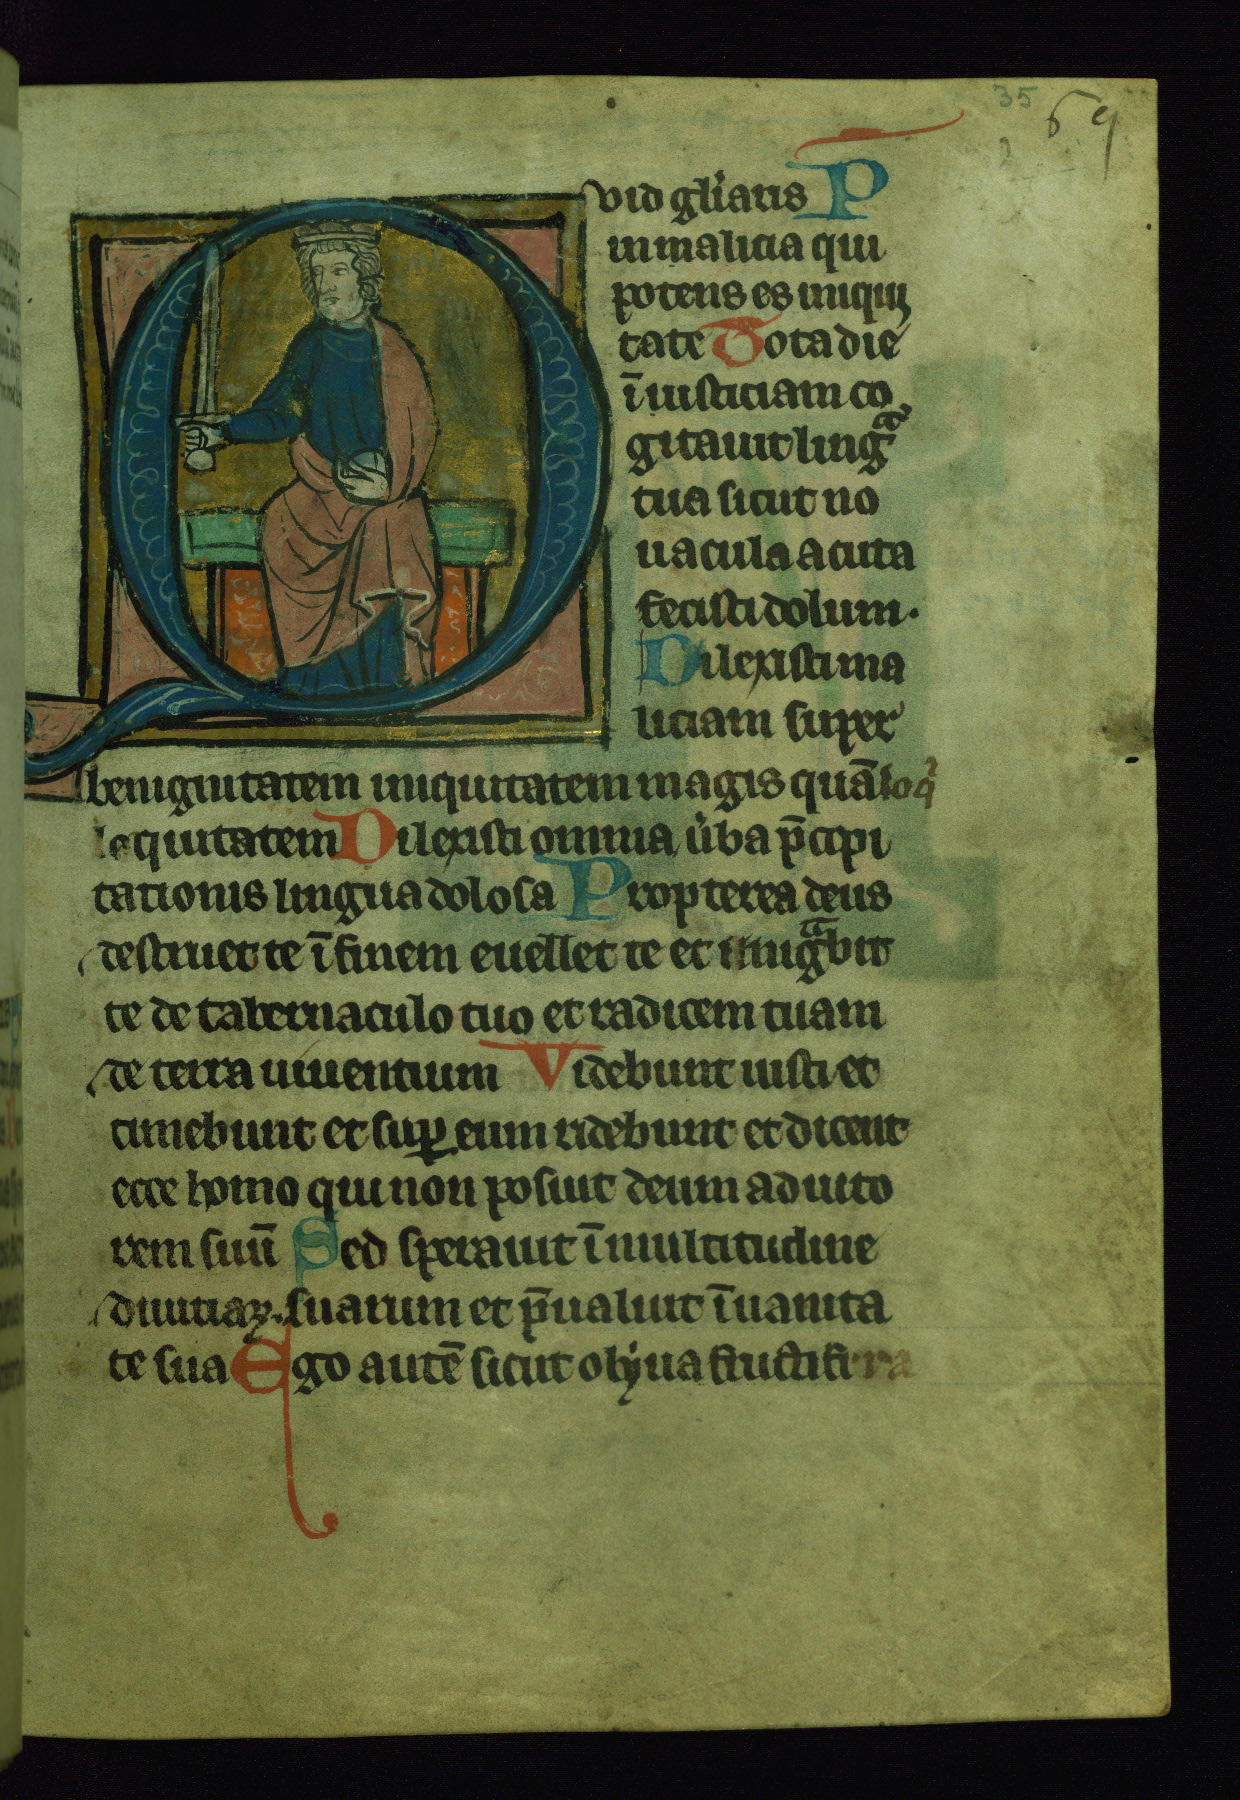 35
69
Quid gl̄iaris P
in malicia qui
potens es iniqui
tate Tota die
ī iusticiam co
gitauit lingᵃ
tua sicut no
uacula acuta
fecisti dolum.
Dilexisti ma
liciam super
benignitatem iniquitatem magis quā loqͥ
loquitatem Dilexisti omnia ūba p̄cipi
tationis lingua dolosa Propterea deus
destruet te ī finem euellet te et migᵃbit
te de tabernaculo tuo et radicem tuam
de terra uiuentium Videbunt iusti et
timebunt et suꝑ eum ridebunt et dicent
ecce homo qui non posuit deum adiuto
rem suū Sed sperauit ī multitudine
diuitiaꝝ. suarum et p̄ualuit ī uanita
te sua Ego autē sicut oliua fructifera